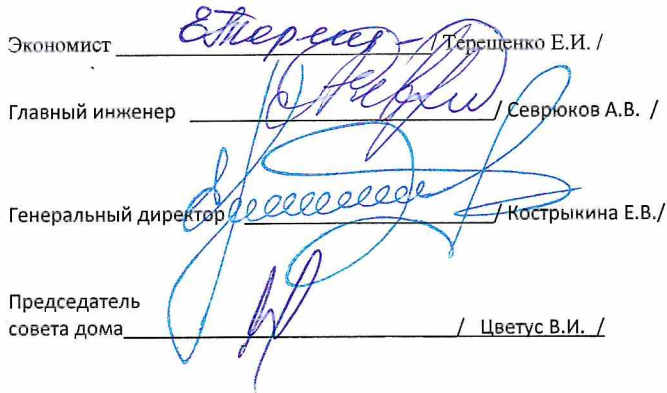 Экономист / Терещенко Е.И. /
Главный инженер / Севрюков А.В. /
Генеральный директор / Кострыкина Е.В./
Председатель
совета дома / Цветус В.И. /